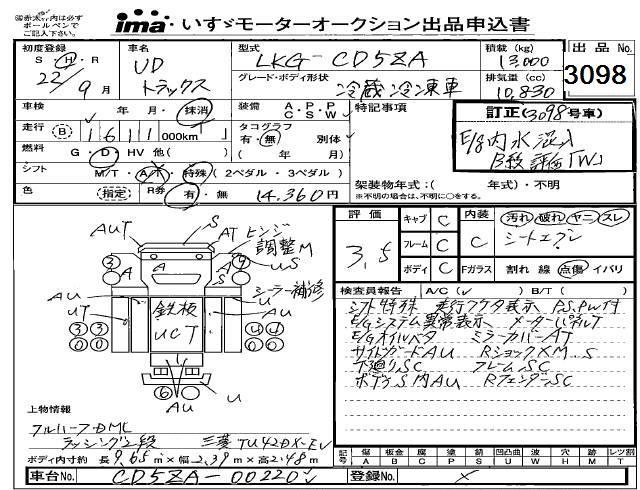 ㊟赤太ワク内は必ず
ボールペンで
ご記入下さい。
ima・いすゞモーターオークション出品申込書
初度登録
S・H・R
22年9月
車名
UD
トラックス
型式
LKG-CD5ZA
グレード・ボディ形状
冷蔵冷凍車
積載 (kg)
13,000
排気量 (cc)
10,830
出品No.
3098
車検
年 月・抹消
装備
A・P・P
C・S・W
特記事項
訂正(3098号車)
E/g内水混入
B殺評価「W」
走行
B
1611 000km
タコグラフ
有・無 別体
( 年 月)
燃料
G・D・HV 他( )
シフト
M/T・A/T・特殊(2ペダル・3ペダル)
色
(指定)
R券
有・無
14,360円
架装物年式:( 年式)・不明
※不明の場合は、不明に○をする。
評価
3.5
キャブ C
フレーム C
ボディ C
内装
C
汚れ 破れ ヤニ スレ
シートエグレ
Fガラス 割れ 線 点傷 イバリ
検査員報告 A/C( ) B/T( )
シフト特殊 走行フタケタ表示 P.S,PW付
E/Gシステム異常表示 メーターパネルT
E/Gオイルベタ ミラーカバーAT
サイドガードAU RショックXM,S
下廻りSC フレームSC
ボディS内AU RフェンダーSC
S
AUT
AT
ヒンジ
調整M
US
A
シーラー補修
AU
UT
鉄板
UCT
U
AU
AU
U
上物情報
フルハーフDML
ラッシング2段 三菱TU42DX-EV
ボディ内寸約 長9.65m×幅2.39m×高2.48m
記号
傷 A
板金 B
腐 C
塗 P
錆 S
凹凸曲 U
波 W
穴 H
跡 M
レンズ割 T
車台No.
CD5ZA-00220
登録No.
×